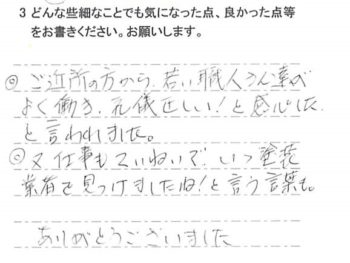 3 どんな些細なことでも気になった点、良かった点等
をお書きください。お願いします。
◎ ご近所の方から、若い職人さん達が
よく働き、礼儀正しい!と感心した
と言われました。
◎ 又仕事もていねいで、いつ塗装
業者を見つけましたね!と言う言葉も。
ありがとうございました